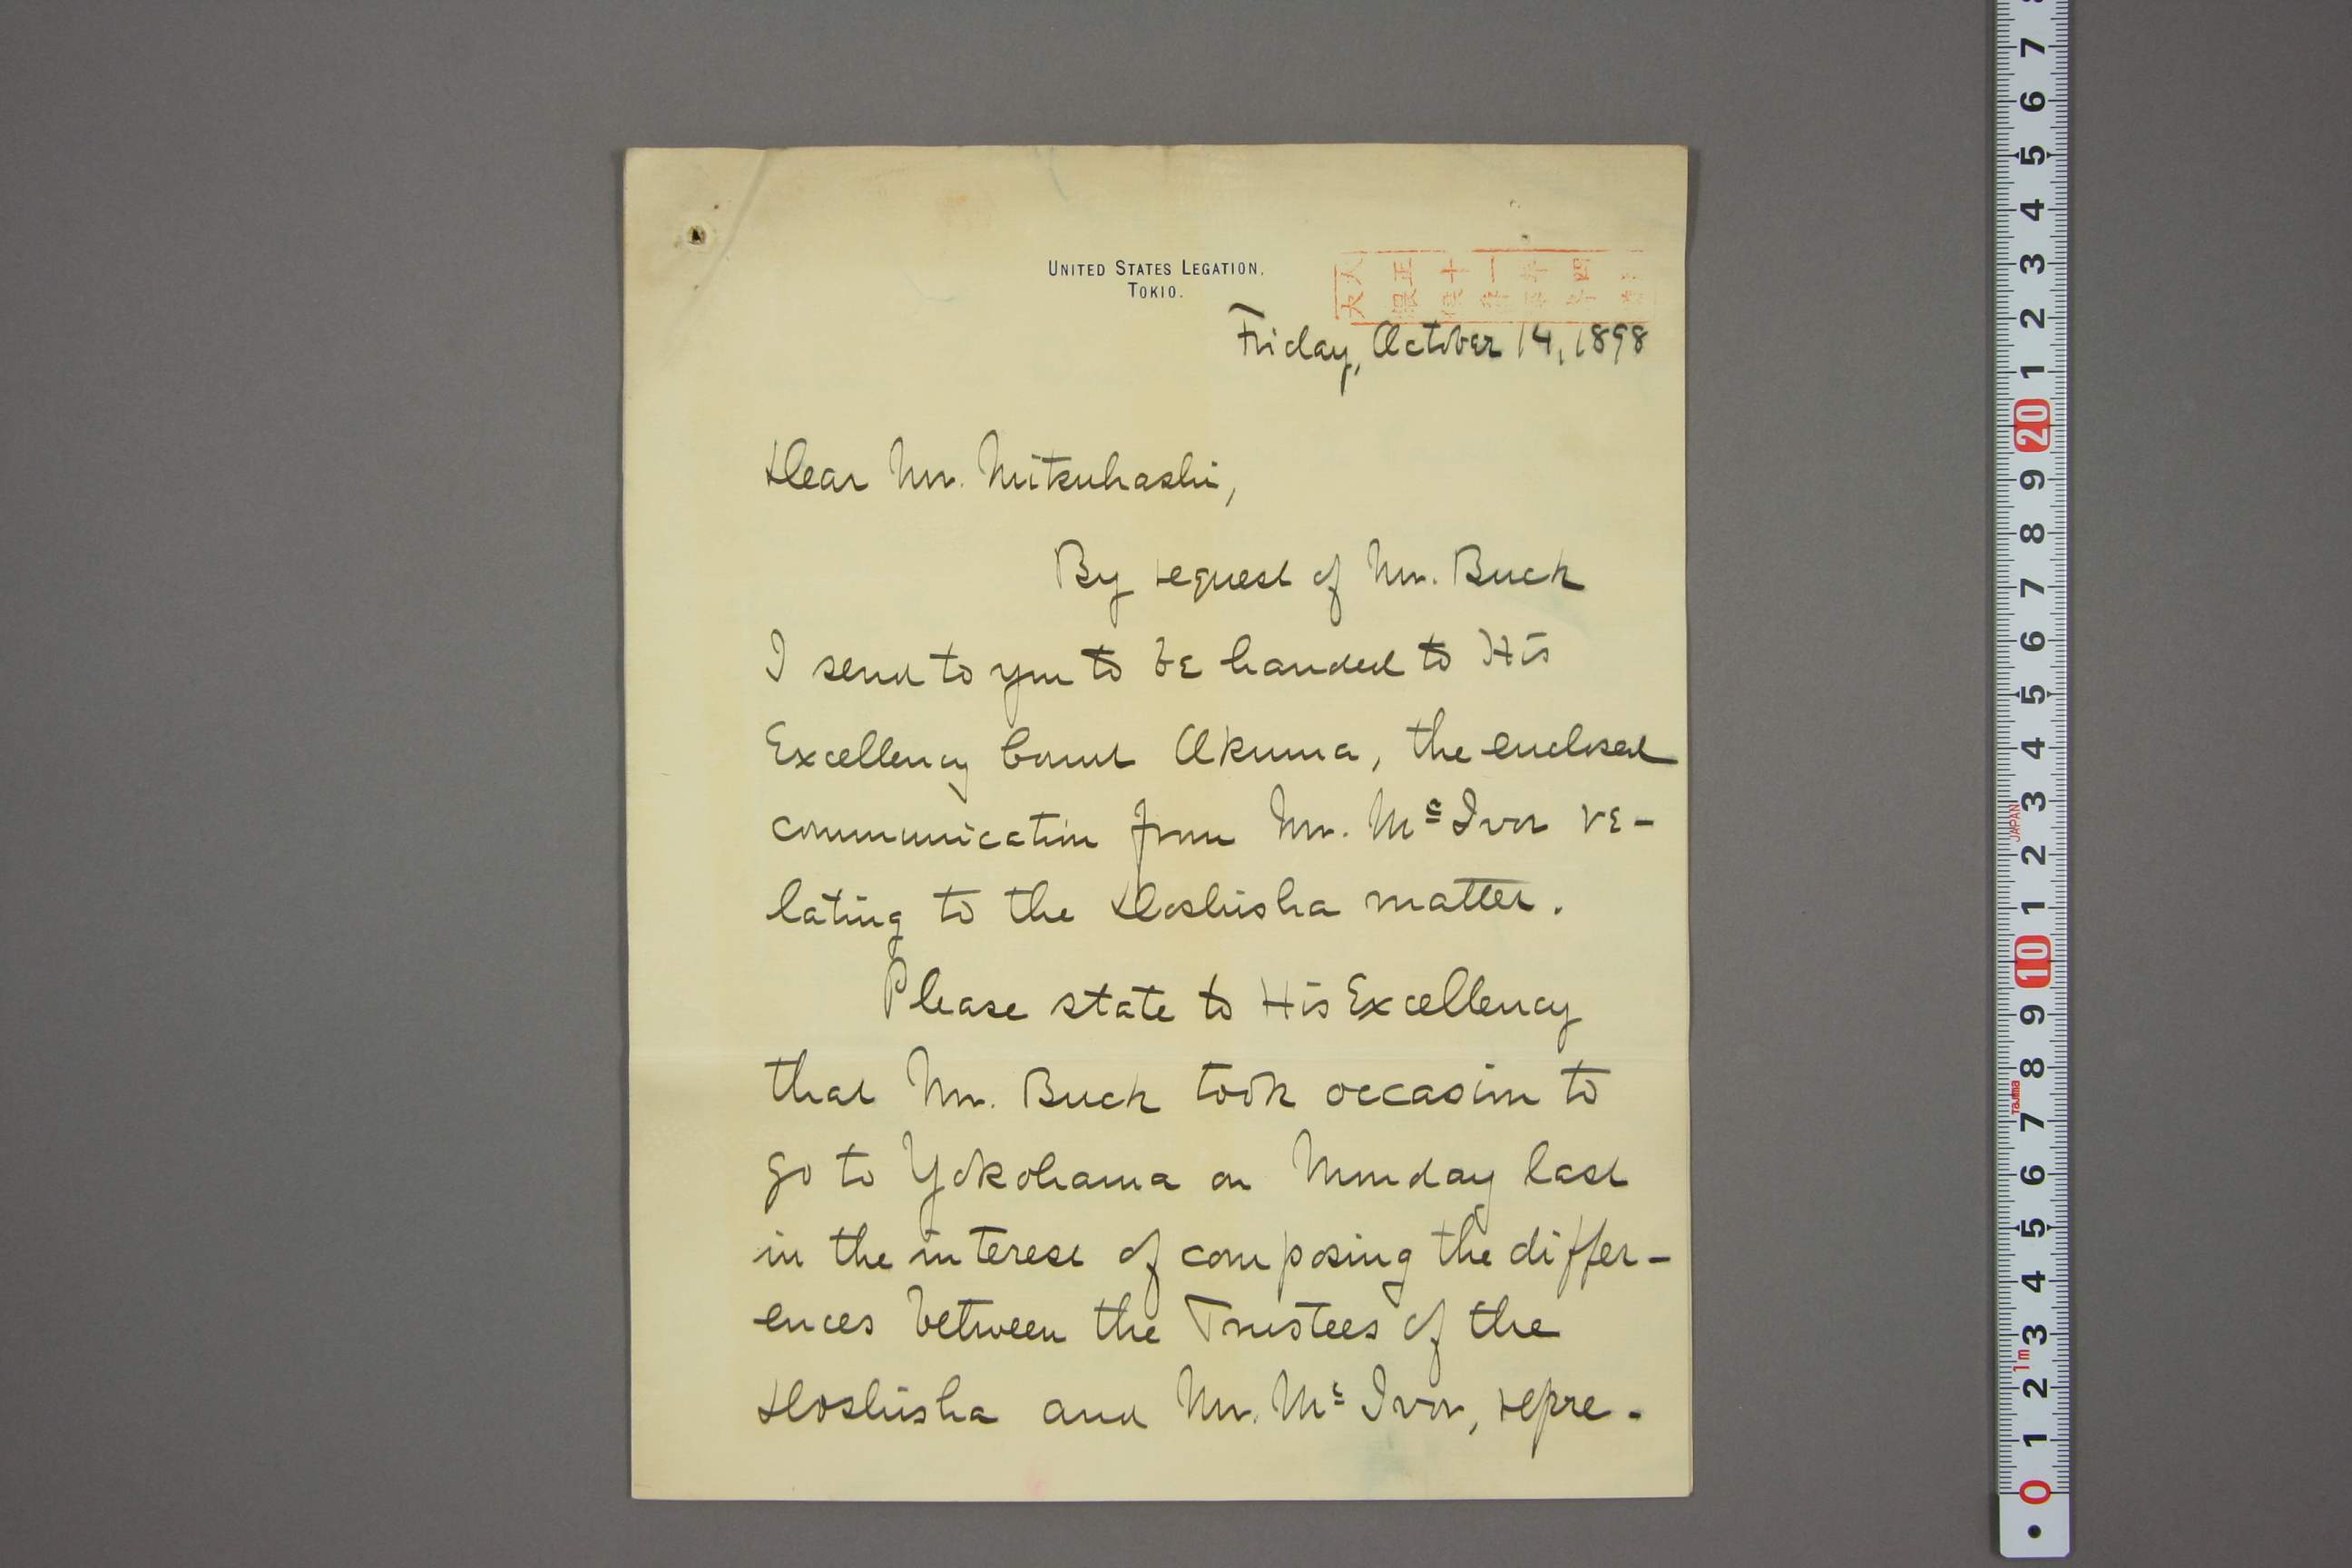 United States Legation,
Tokio.
Friday, October 14, 1898
Dear Mr. Mitsuhashi,
By request of Mr. Buck
I send to you to be handed to His
Excellency Count Okuma, the enclosed
communication from Mr. McIvor re-
lating to the Doshisha matter.
Please state to His Excellency
that Mr. Buck took occasion to
go to Yokohama on Monday last
in the interest of composing the differ-
ences between the Trustees of the
Doshisha and Mr. McIvor, repre-
7
6
5
4
3
2
1
20
9
8
7
6
5
4
3
JAPAN
2
1
10
9
8
Tajima
7
6
5
4
3
1m
2
1
0